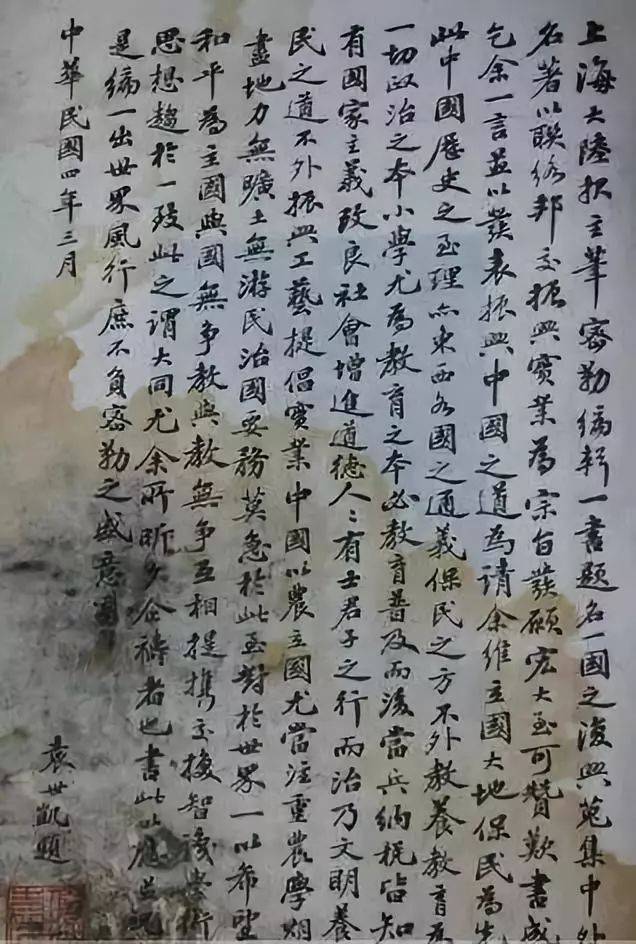 上海大陸报主筆密勒编輯一書題名一國之復興蒐集中外
名著以联络邦交振興實業為宗旨發願宏大至可贊歎書成
乞余一言並以發表振興中國之道為請余維立國大地保民為先
此中國歷史之至理亦東西各國之通義保民之方不外教養教育為
一切政治之本小學尤為教育之本必教育普及而後當兵納税皆知
有國家主義改良社會增進道德人:有士君子之行而治乃文明養
民之道不外振興工藝提倡實業中國以農立國尤當注重農學烟
盡地力無曠土無游民治國要務莫急於此至對於世界一以希望
和平為主國與國無争教與教無争互相提携交換智識學術
思想趨於一致此之謂大同尤余所昕夕企禱者也書此以應並祝
是编一出世界風行庶不負密勒之盛意
中華民國四年三月
袁世凱題